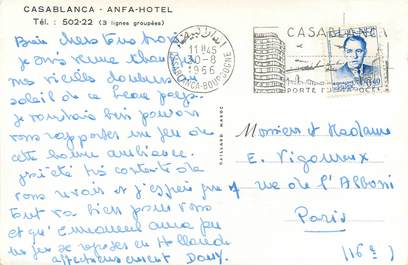 CASABLANCA - ANFA-HOTEL
Tél. : 502-22 (3 lignes groupées)
Bien chers tous
je suis venue
mes vieilles douleurs au
soleil de ce beau pays.
je voudrais bien pouvoir
vous rapporter un peu de
cette bonne ambiance.
j'ai été très contente de
vous revoir et j'espère que
tout va bien pour vous
et qu'Emmanuel aura pu
un peu se reposer en Hollande
affectueusement Dany.
11H45
30-8
1966
CASABLANCA-BOURGOGNE
CASABLANCA
PORTE
0,40
GAILLARD MAROC
Monsieur et Madame
E. Vigouroux
rue de l'Abbé
Paris
(16e)